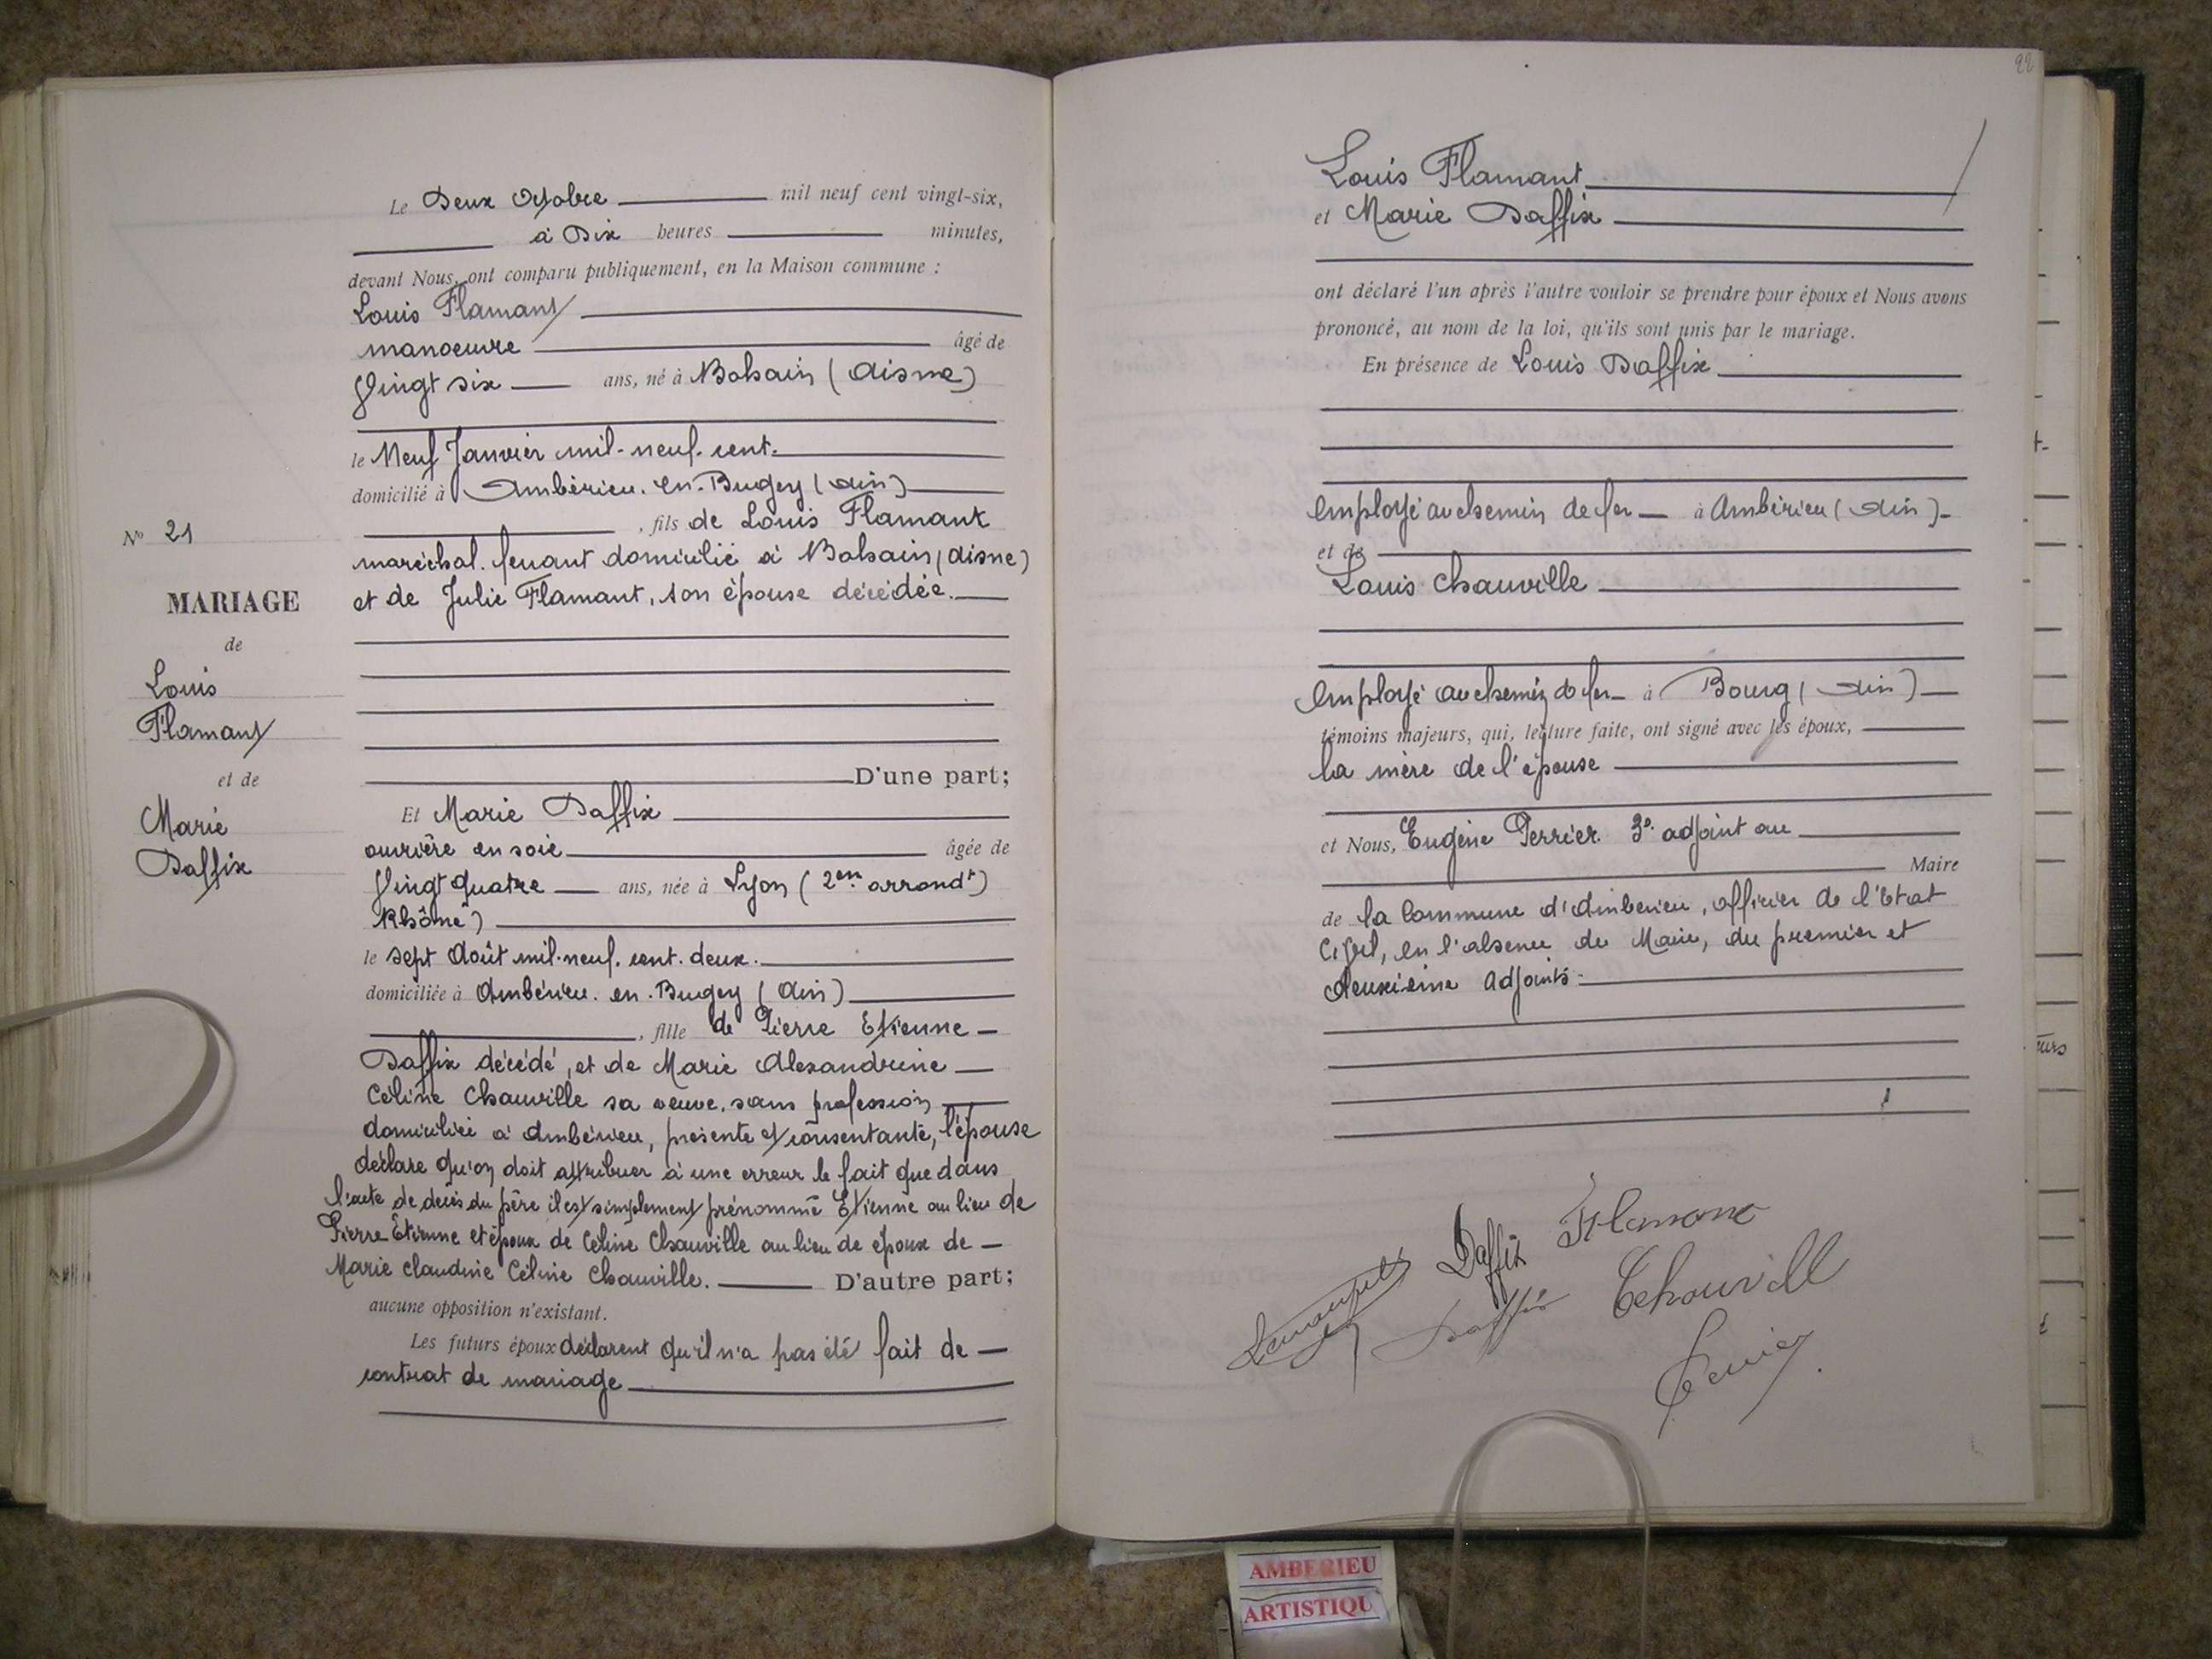 Nº 21
MARIAGE
de
Louis
Flamant
et de
Marie
Daffix
Le Deux Octobre mil neuf cent vingt-six,
à Dix heures minutes,
devant Nous, ont comparu publiquement, en la Maison commune :
Louis Flamant
manoeuvre âgé de
Vingt six ans, né à Bohain (Aisne)
le Neuf Janvier mil-neuf-cent.
domicilié à Ambérieu-en-Bugey (Ain)
, fils de Louis Flamant
maréchal-ferrant domicilié à Bohain (Aisne)
et de Julie Flamant, son épouse décédée.
D'une part;
Et Marie Daffix
ouvrière en soie âgée de
Vingt quatre ans, née à Lyon (2em arrondt
Rhône)
le sept Août mil-neuf-cent-deux.
domiciliée à Ambérieu-en-Bugey (Ain)
, fille de Pierre Etienne
Daffix décédé, et de Marie Alexandrine
Céline Chauville sa veuve, sans profession
domiciliée à Ambérieu, présente et consentante, l'épouse
déclare qu'on doit attribuer à une erreur le fait que dans
l'acte de décès du père il est simplement prénommé Etienne au lieu de
Pierre Etienne et époux de Céline Chauville au lieu de époux de
Marie Claudine Céline Chauville. D'autre part;
aucune opposition n'existant.
Les futurs époux déclarent qu'il n'a pas été fait de
contrat de mariage
22
Louis Flamant
et Marie Daffix
ont déclaré l'un après l'autre vouloir se prendre pour époux et Nous avons
prononcé, au nom de la loi, qu'ils sont unis par le mariage.
En présence de Louis Daffix
employé au chemin de fer à Ambérieu (Ain)
et de
Louis Chauville
employé au chemin de fer à Bourg (Ain)
témoins majeurs, qui, lecture faite, ont signé avec les époux,
la mère de l'épouse
et Nous, Eugène Perrier 3e adjoint au
Maire
de la Commune d'Ambérieu, officier de l'Etat
Civil, en l'absence du Maire, du premier et
deuxième Adjoints
Daffix Flamant
Daffix Chauville
Perrier
AMBERIEU
ARTISTIQU